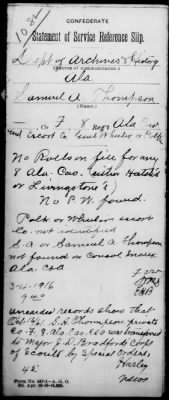 1081
CONFEDERATE
Statement of Service Reference Slip.
Dept of Archives & History
(Source of communication.)
Ala.
Samuel A. Thompson
(Name.)
Co. F 8 Reg't Ala Cav
and Escort Co Genl Wheeler or Polk
No Rolls on file for any
8 Ala. Cav. (either Hatch's
or Livingstone's)
No P. W. found.
Polk or Wheeler escort
Co. not identified
S. A. or Samuel A. Thompson
not found in Consol. Index
Ala. CSA
3-4-1916
940
Uncarded records show that
S. A. Thompson, private
Co. F, 8 Ala. Cav. CSA was transferred
to Major J. D. Bradford's Corps
of Scouts by Special Orders,
Harley
42
Form No. 347-1—A. G. O.